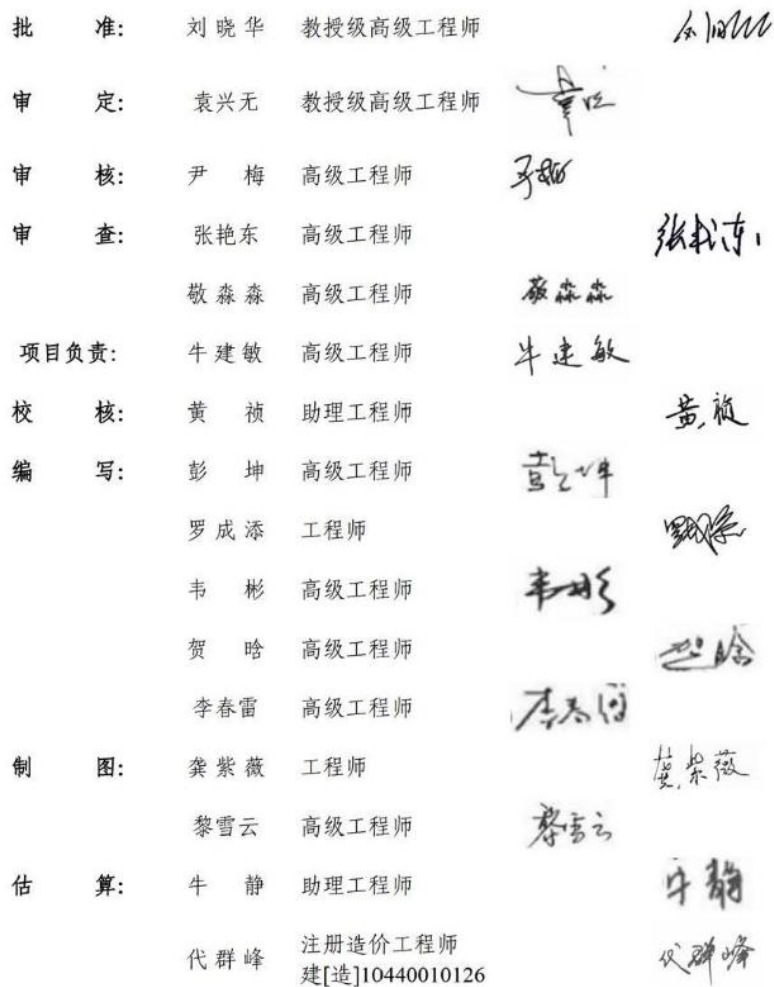 批 准： 刘晓华 教授级高级工程师
审 定： 袁兴无 教授级高级工程师
审 核： 尹 梅 高级工程师
审 查： 张艳东 高级工程师
敬淼淼 高级工程师 敬淼淼
项目负责： 牛建敏 高级工程师 牛建敏
校 核： 黄 祯 助理工程师
编 写： 彭 坤 高级工程师
罗成添 工程师
韦 彬 高级工程师
贺 晗 高级工程师
李春雷 高级工程师
制 图： 龚紫薇 工程师 龚紫薇
黎雪云 高级工程师 黎雪云
估 算： 牛 静 助理工程师 牛静
代群峰 注册造价工程师 代群峰
建[造]10440010126